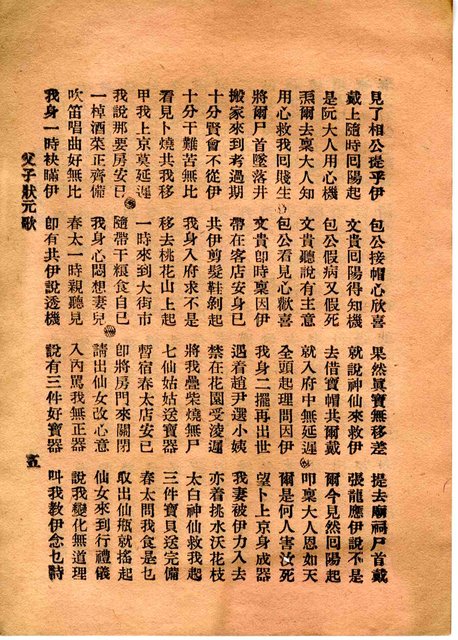 見了相公提乎伊 包公接帽心欣喜 果然眞實無移差 提去廟祠尸首戴
戴上隨時囘陽起 文貴囘陽得知機 就說神仙來救伊 張龍應伊說不是
是阮大人用心機 包公假病又假死 去借寶帽共爾戴 爾今見然囘陽起
爾去稟大人知 文貴聽說有主意 就入府中無延遲 叩稟大人恩如天
用心救我囘賤生 包公看見心歡喜 全頭起理問因伊 爾是何人害汝死
將爾尸首墜落井 文貴卽時稟因伊 我身二擺再出世 望卜上京身成器
搬家來到考過期 帶在客店安身已 遇着趙尹選小姨 我妻被伊力入去
十分賢會不從伊 共伊剪髮鞋剝起 禁在花園受淩遲 亦着挑水沃花枝
十分干難苦無比 我身入府求不是 將我疊柴燒無尸 太白神仙救我起
看見卜燒共我移 移去桃花山上起 七仙姑姑送寶器 三件寶貝送完備
甲我上京莫延遲 一時來到大街市 暫宿春太店安已 春太問我食是乜
我說那要房安已 隨帶干粮食自已 卽將房門來關閉 取出仙瓶就搖起
一棹酒菜正齊備 我身心悶想妻兒 請出仙女改心意 仙女來到行禮儀
吹笛唱曲好無比 春太一時親聽見 入內罵我無正器 說我變化無道理
我身一時瞞伊 卽有共伊說透機 說有三件好寶器 叫我教伊念乜詩
父子狀元歌 五